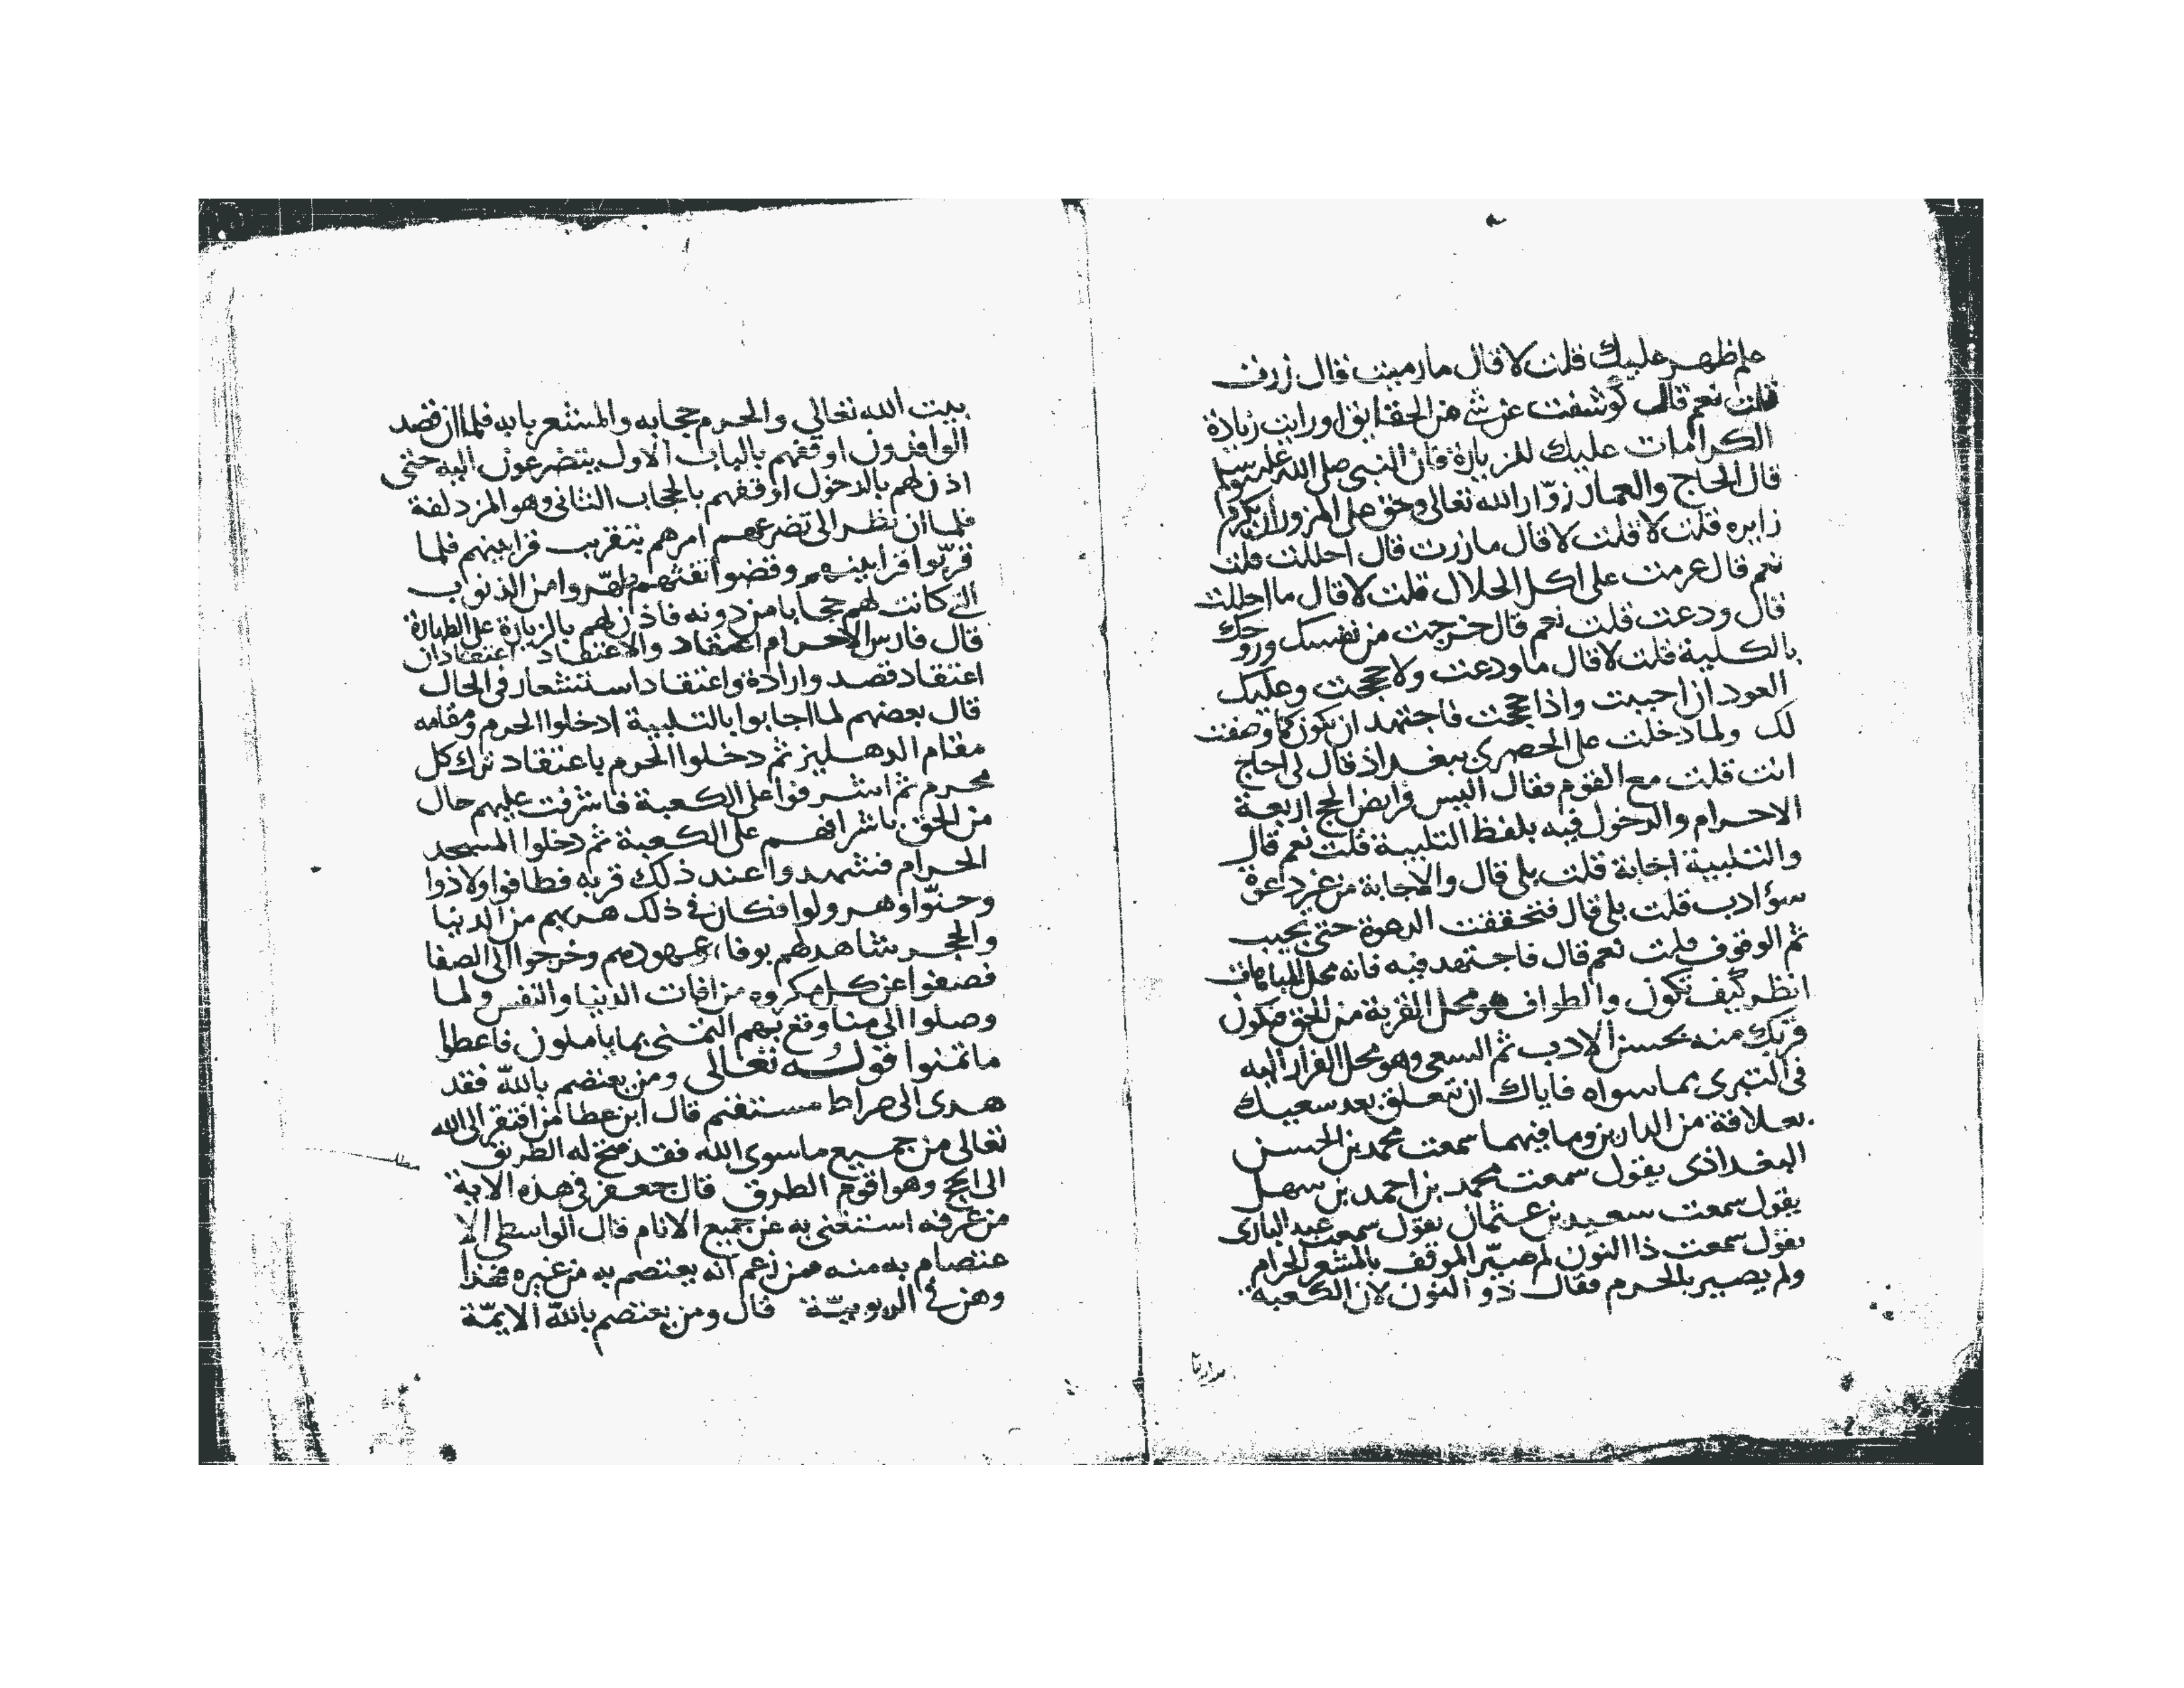 علم ظهر عليك قلت لا قال ما رميت قال زرت
قلت نعم قال كوشفت عن شئ من الحقايق او رايت زيادة
الكرامات عليك للزيارة فان النبى صلى الله عليه وسلم
قال الحاج والعمار زوّار الله تعالى وحق على المزور ان يكرم
زايره قلت لا قلت لا قال ما زرت قال احللت قلت
نعم قال عزمت على اكل الحلال قلت لا قال ما احللت
قال ودعت قلت نعم قال خرجت من نفسك وروحك
بالكلية قلت لا قال ما ودعت ولا حججت وعليك
العود ان احببت واذا حججت فاجتهد ان تكون كما وصفت
لك ولما دخلت على الحصرى ببغداذ قال لى احاج
انت قلت مع القوم فقال اليس فرايض الحج اربعة
الاحرام والدخول فيه بلفظ التلبية قلت نعم قال
والتلبية اجابة قلت بلى قال والاجابة من غير دعوة
سؤ ادب قلت بلى قال فتحققت الدعوة حتى تجيب
ثم الوقوف قلت نعم قال فاجتهد فيه فانه محل المباهات
انظر كيف تكون والطواف هو محل القربة من الحق فتكون
قربك منه بحسن الادب ثم السعى وهو محل الفرار اليه
فى التبرى مما سواه فاياك ان تتعلق بعد سعيك
بعلاقة من الدارين وما فيهما سمعت محمد بن الحسن
البغداذى يقول سمعت محمد بن احمد بن سهل
يقول سمعت سعيد بن عثمان يقول سمعت عبد البارى
يقول سمعت ذا النون لم صيّر الموقف بالمشعر الحرام
ولم يصير بالحرم فقال ذو النون لان الكعبة
بيت الله تعالى والحرم حجابه والمشعر بابه فلما ان قصد
الوافدون اوقفهم بالباب الاول يتضرعون اليه حتى
اذن لهم بالدخول اوقفهم بالحجاب الثانى وهو المزدلفة
فلما ان نظر الى تضرعهم امرهم بتقريب قرابينهم فلما
قرّبوا قرابينهم وقضوا تفثهم وطهّروا من الذنوب
التى كانت لهم حجابا من دونه فاذن لهم بالزيارة على الطهارة
قال فارس الاحرام اعتقاد والاعتقاد اعتقادان
اعتقاد قصد وارادة واعتقاد استشعار فى الحال
قال بعضهم لما اجابوا بالتلبية ادخلوا الحرم ومقامه
مقام الدهليز ثم دخلوا الحرم باعتقاد ترك كل
محرم ثم اشرفوا على الكعبة فاشرفت عليهم حال
من الحق باشرافهم على الكعبة ثم دخلوا المسجد
الحرام فشهدوا عند ذلك قربه فطافوا ولاذوا
وحنّوا وهرولوا فكان فى ذلك هربهم من الدنيا
والحجر شاهد لهم بوفاء عهودهم وخرجوا الى الصفا
فصفوا عن كل مكروه من افات الدنيا والنفس ولما
وصلوا الى منا وقع بهم التمنى بما ياملون فاعطوا
ما تمنوا قوله تعالى ومن يعتصم بالله فقد
هدى الى صراط مستقيم قال ابن عطا من افتقر الى الله
تعالى من جميع ماسوى الله فقد فتح له الطريق
الى الحج وهو اقوم الطرق قال جعفر فى هذه الاية
من عرفه استغنى به عن جميع الانام قال الواسطى الا
عتصام به منه فمن زعم انه يعتصم به من غيره فهذا
وهن فى الربوبيّة قال ومن يعتصم بالله الايمّة